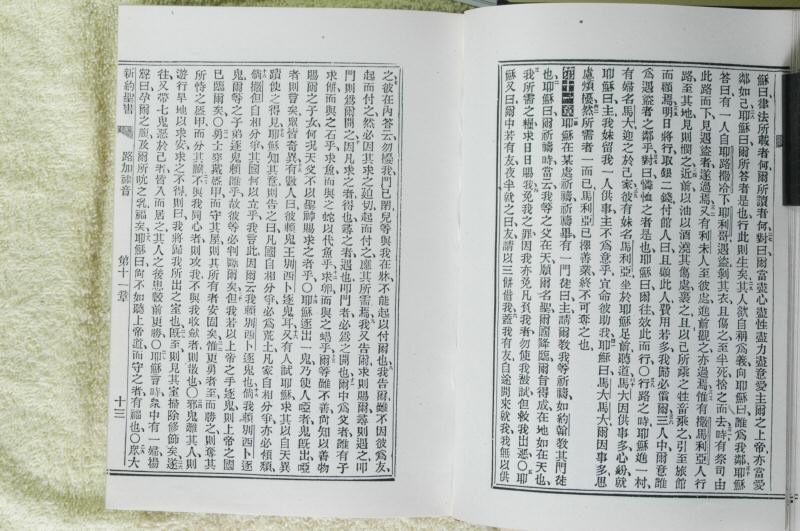 蘇曰律法所載者何爾所讀者何對曰爾當盡心盡性盡力盡意愛主爾之上帝亦當愛
鄰如己耶蘇曰爾所答者是也行此則生矣其人欲自稱爲義向耶蘇曰誰爲我鄰耶蘇
答曰有一人自耶路撒冷下耶利哥遇盜剝其衣且傷之至半死捨之而去時有祭司由
此路而下見遇盜者遂過焉又有利未人至彼處進前觀之亦過焉惟有撒馬利亞人行
路至其地見則憫之近前以油以酒澆其傷處裹之且以己所乘之牲畜乘之引至旅館
而顧焉明日將行取銀二錢付館人曰且顧此人費用若多我歸必償爾三人中爾意誰
爲遇盜者之鄰乎對曰憐恤之者是也耶蘇曰爾往效此而行○行路之時耶蘇進一村
有婦名馬大迎之於己家彼有妹名馬利亞坐於耶蘇足前聽道馬大因供事多心紛就
耶蘇曰主我妹留我一人供事主不爲意乎宜命彼助我耶蘇曰馬大馬大爾因事多思
慮煩擾然所需者一而已馬利亞已擇善業終不可奪之也
第十一章耶蘇在某處祈禱祈禱畢有一門徒曰主請爾教我等祈禱如約翰教其門徒
也耶蘇曰爾祈禱時當云我等之父在天願爾名聖爾國降臨爾旨得成在地如在天也
我所需之糧求日日賜我免我之罪因我亦免凡負我者勿使我被試但救我出惡○耶
蘇又曰爾中若有友夜半就之曰友請以三餅借我蓋我有友自途間來就我我無以供
之彼在內答云勿擾我門已閉兒等與我在牀不能起以付爾也我告爾雖不因彼爲友
起而付之然必因其求之迫切起而付之應其所需焉我又告爾求則賜爾尋則遇之叩
門則爲爾開之因凡求之者得也尋之者遇也叩門者必爲之開也爾中爲父者誰有子
求餅而與之石乎求魚而與之蛇以代魚乎求卵而與之蝎乎爾等雖不善尚知以善物
賜爾之子女何況天父不以聖神賜求之者乎○耶蘇逐出一鬼乃使人啞者鬼既出啞
者則言矣眾皆奇異有數人曰彼賴鬼王別西卜逐鬼耳又有人試耶蘇求其以自天異
蹟使之得見耶蘇知其意則告之曰凡國自相分爭其國必爲荒土凡家自相分爭亦必傾頹
倘撒但自相分爭其國何以立乎我言此因爾云我賴別西卜逐鬼也倘我賴別西卜逐
鬼爾等之子弟逐鬼賴誰乎故彼等必判斷爾矣但我若以上帝之手逐鬼則上帝之國
已臨爾矣○勇士穿戴盔甲而守其屋則其所有者安固矣惟更勇者至而勝之則奪其
所恃之盔甲而分其贓不與我同心者則攻我不與我收斂者則散也○邪鬼離其人則
遊行旱地以求安求之不得則曰我將歸我所出之室也既至則見其室掃除修飾矣遂
往又帶七鬼惡於己者皆入而居之其人之後患較前更勝○耶蘇言時眾中有一婦揚
聲曰孕爾之腹及爾所吮之乳福矣耶蘇曰尚不如聽上帝道而守之者有福也○眾大
新約聖書
路加福音
第十一章
十三